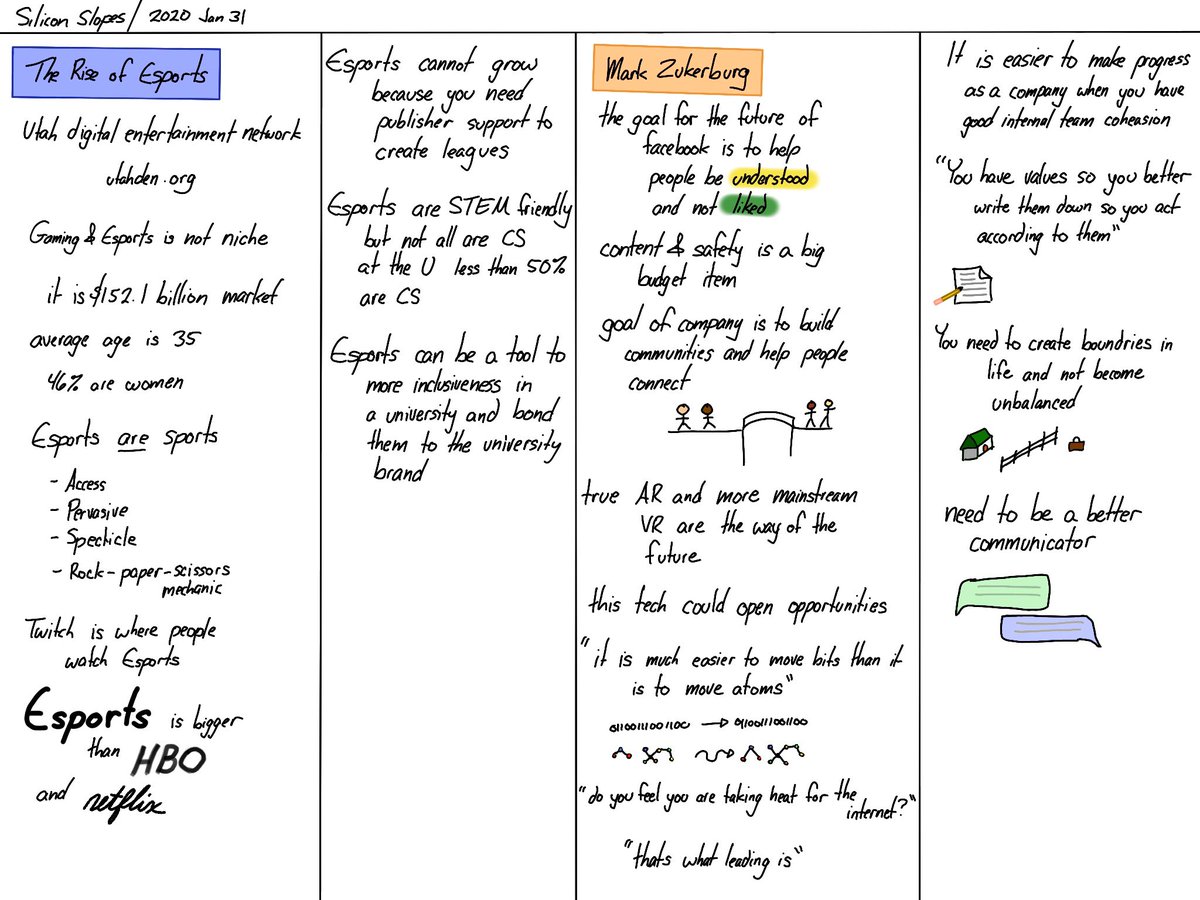 Silicon Slopes / 2020 Jan 31
The Rise of Esports
Utah digital entertainment network
utahden.org
Gaming & Esports is not niche
it is $152.1 billion market
average age is 35
46% are women
Esports are sports
- Access
- Pervasive
- Specticle
- Rock-paper-scissors
mechanic
Twitch is where people
watch Esports
Esports is bigger
than HBO
and netflix
Esports cannot grow
because you need
publisher support to
create leagues
Esports are STEM friendly
but not all are CS
at the U less than 50%
are CS
Esports can be a tool to
more inclusiveness in
a university and bond
them to the university
brand
Mark Zukerburg
the goal for the future of
facebook is to help
people be understood
and not liked
content & safety is a big
budget item
goal of company is to build
communities and help people
connect
true AR and more mainstream
VR are the way of the
future
this tech could open opportunities
"it is much easier to move bits than it
is to move atoms"
01100111001100 → 01100111001100
"do you feel you are taking heat for the
internet?"
"thats what leading is"
It is easier to make progress
as a company when you have
good internal team coheasion
"You have values so you better
write them down so you act
according to them"
You need to create boundries in
life and not become
unbalanced
need to be a better
communicator